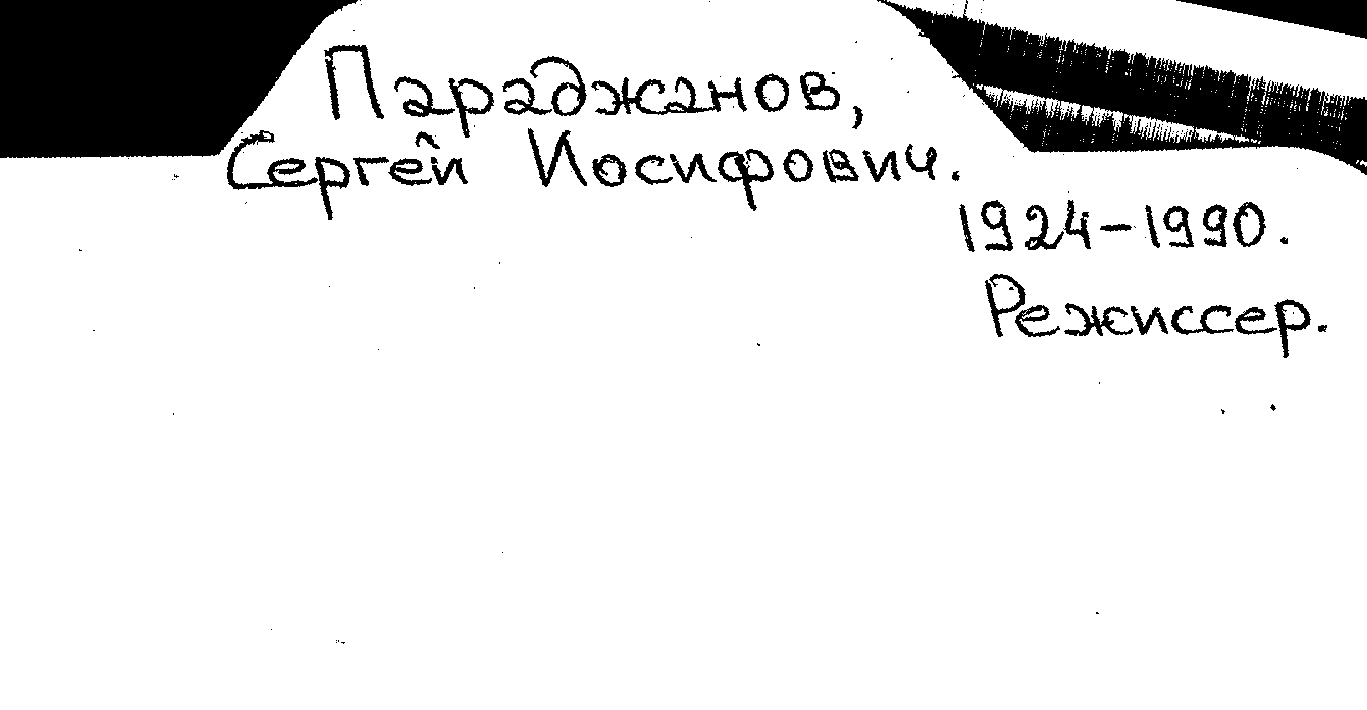 Параджанов,
Сергей Иосифович.
1924-1990.
Режиссер.